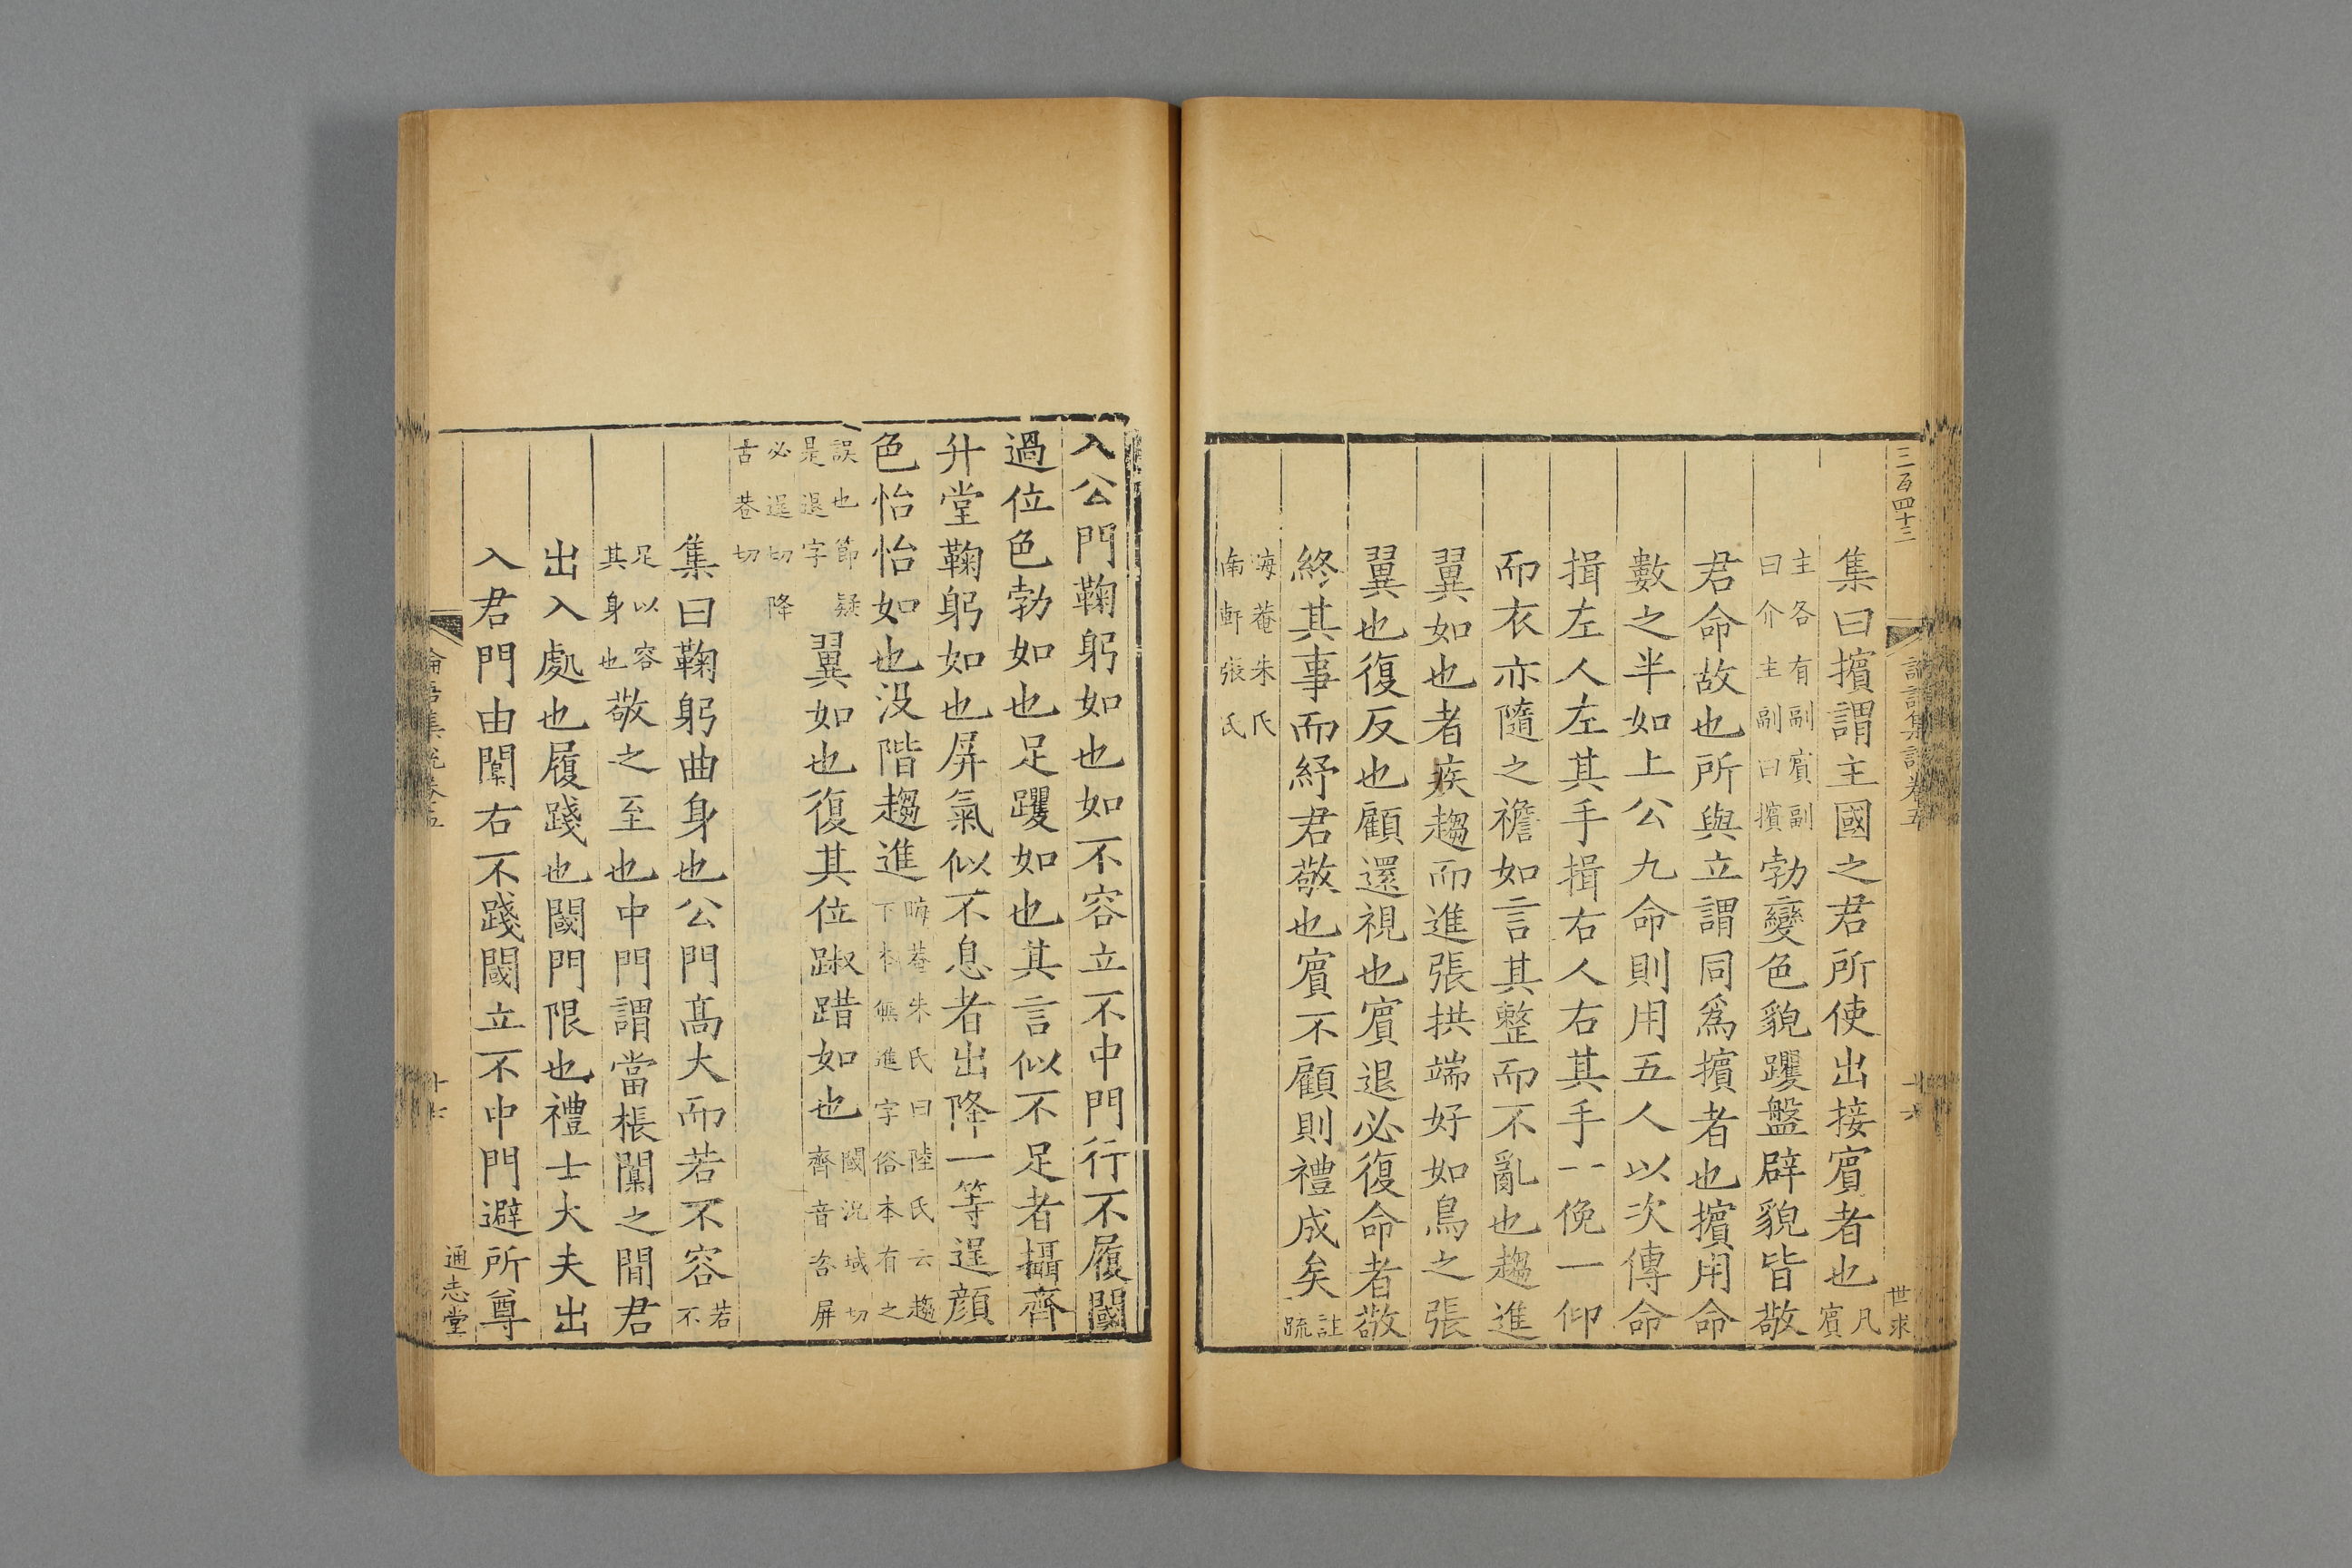 三百四十三
世求
集曰擯謂主國之君所使出接賓者也凡賓
主各有副賓副曰介主副曰擯勃變色貌躩盤辟貌皆敬
君命故也所與立謂同爲擯者也擯用命
數之半如上公九命則用五人以次傳命
揖左人左其手揖右人右其手一俛一仰
而衣亦隨之襜如言其整而不亂也趨進
翼如也者疾趨而進張拱端好如鳥之張
翼也復反也顧還視也賓退必復命者敬
終其事而紓君敬也賓不顧則禮成矣註疏
晦菴朱氏南軒張氏
入公門鞠躬如也如不容立不中門行不履閾
過位色勃如也足躩如也其言似不足者攝齊
升堂鞠躬如也屏氣似不息者出降一等逞顔
色怡怡如也没階趨進晦菴朱氏曰陸氏云趨下本無進字俗本有之
誤也節疑是退字翼如也復其位踧踖如也閾况域切齊音咨屏
必逞切降古巷切
集曰鞠躬曲身也公門高大而若不容若不
足以容其身也敬之至也中門謂當棖闑之間君
出入處也履踐也閾門限也禮士大夫出
入君門由闑右不踐閾立不中門避所尊
論語集說卷五
十七
通志堂